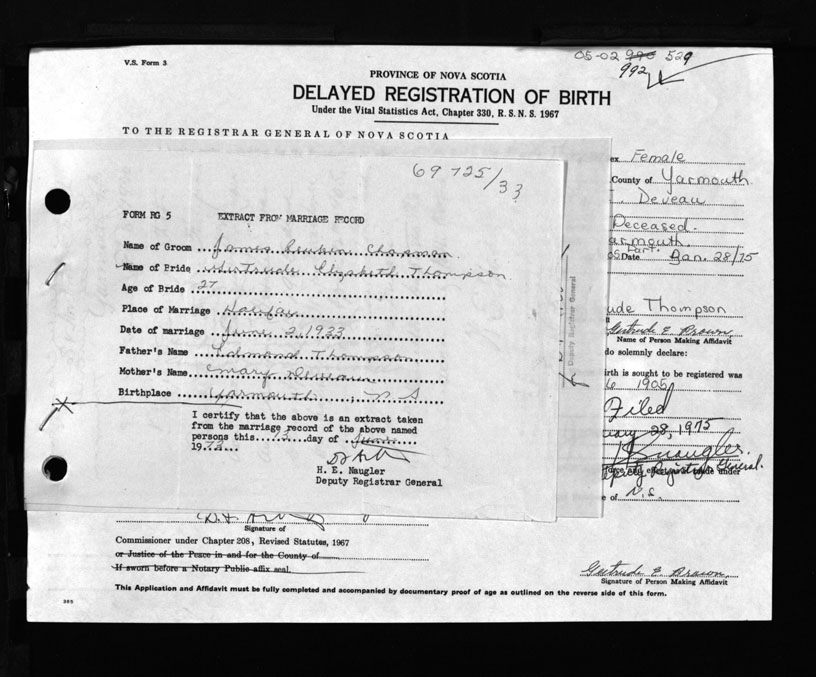 V.S. Form 3
05-02 990 529
992
PROVINCE OF NOVA SCOTIA
DELAYED REGISTRATION OF BIRTH
Under the Vital Statistics Act, Chapter 330, R.S.N.S. 1967
TO THE REGISTRAR GENERAL OF NOVA SCOTIA
69 725/33
FORM RG 5 EXTRACT FROM MARRIAGE RECORD
Name of Groom James Reuben Chapman
Name of Bride Gertrude Elizabeth Thompson
Age of Bride 27
Place of Marriage Halifax
Date of marriage June 2, 1933
Father's Name Edmond Thompson
Mother's Name Mary Deveau
Birthplace Yarmouth, N S
I certify that the above is an extract taken
from the marriage record of the above named
persons this 13 day of June
1973
H. E. Naugler
Deputy Registrar General
Deputy Registrar General
ex Female
County of Yarmouth
Deveau
Deceased.
armouth.
Date Jan. 28/75
ude Thompson
Gertrude E. Brown
Name of Person Making Affidavit
do solemnly declare:
irth is sought to be registered was
6 1905
Filed
uary 28, 1975
Naugler
Deputy Registrar General.
e of N.S.
Signature of
Commissioner under Chapter 208, Revised Statutes, 1967
or Justice of the Peace in and for the County of
If sworn before a Notary Public affix seal.
Gertrude E. Brown
Signature of Person Making Affidavit
This Application and Affidavit must be fully completed and accompanied by documentary proof of age as outlined on the reverse side of this form.